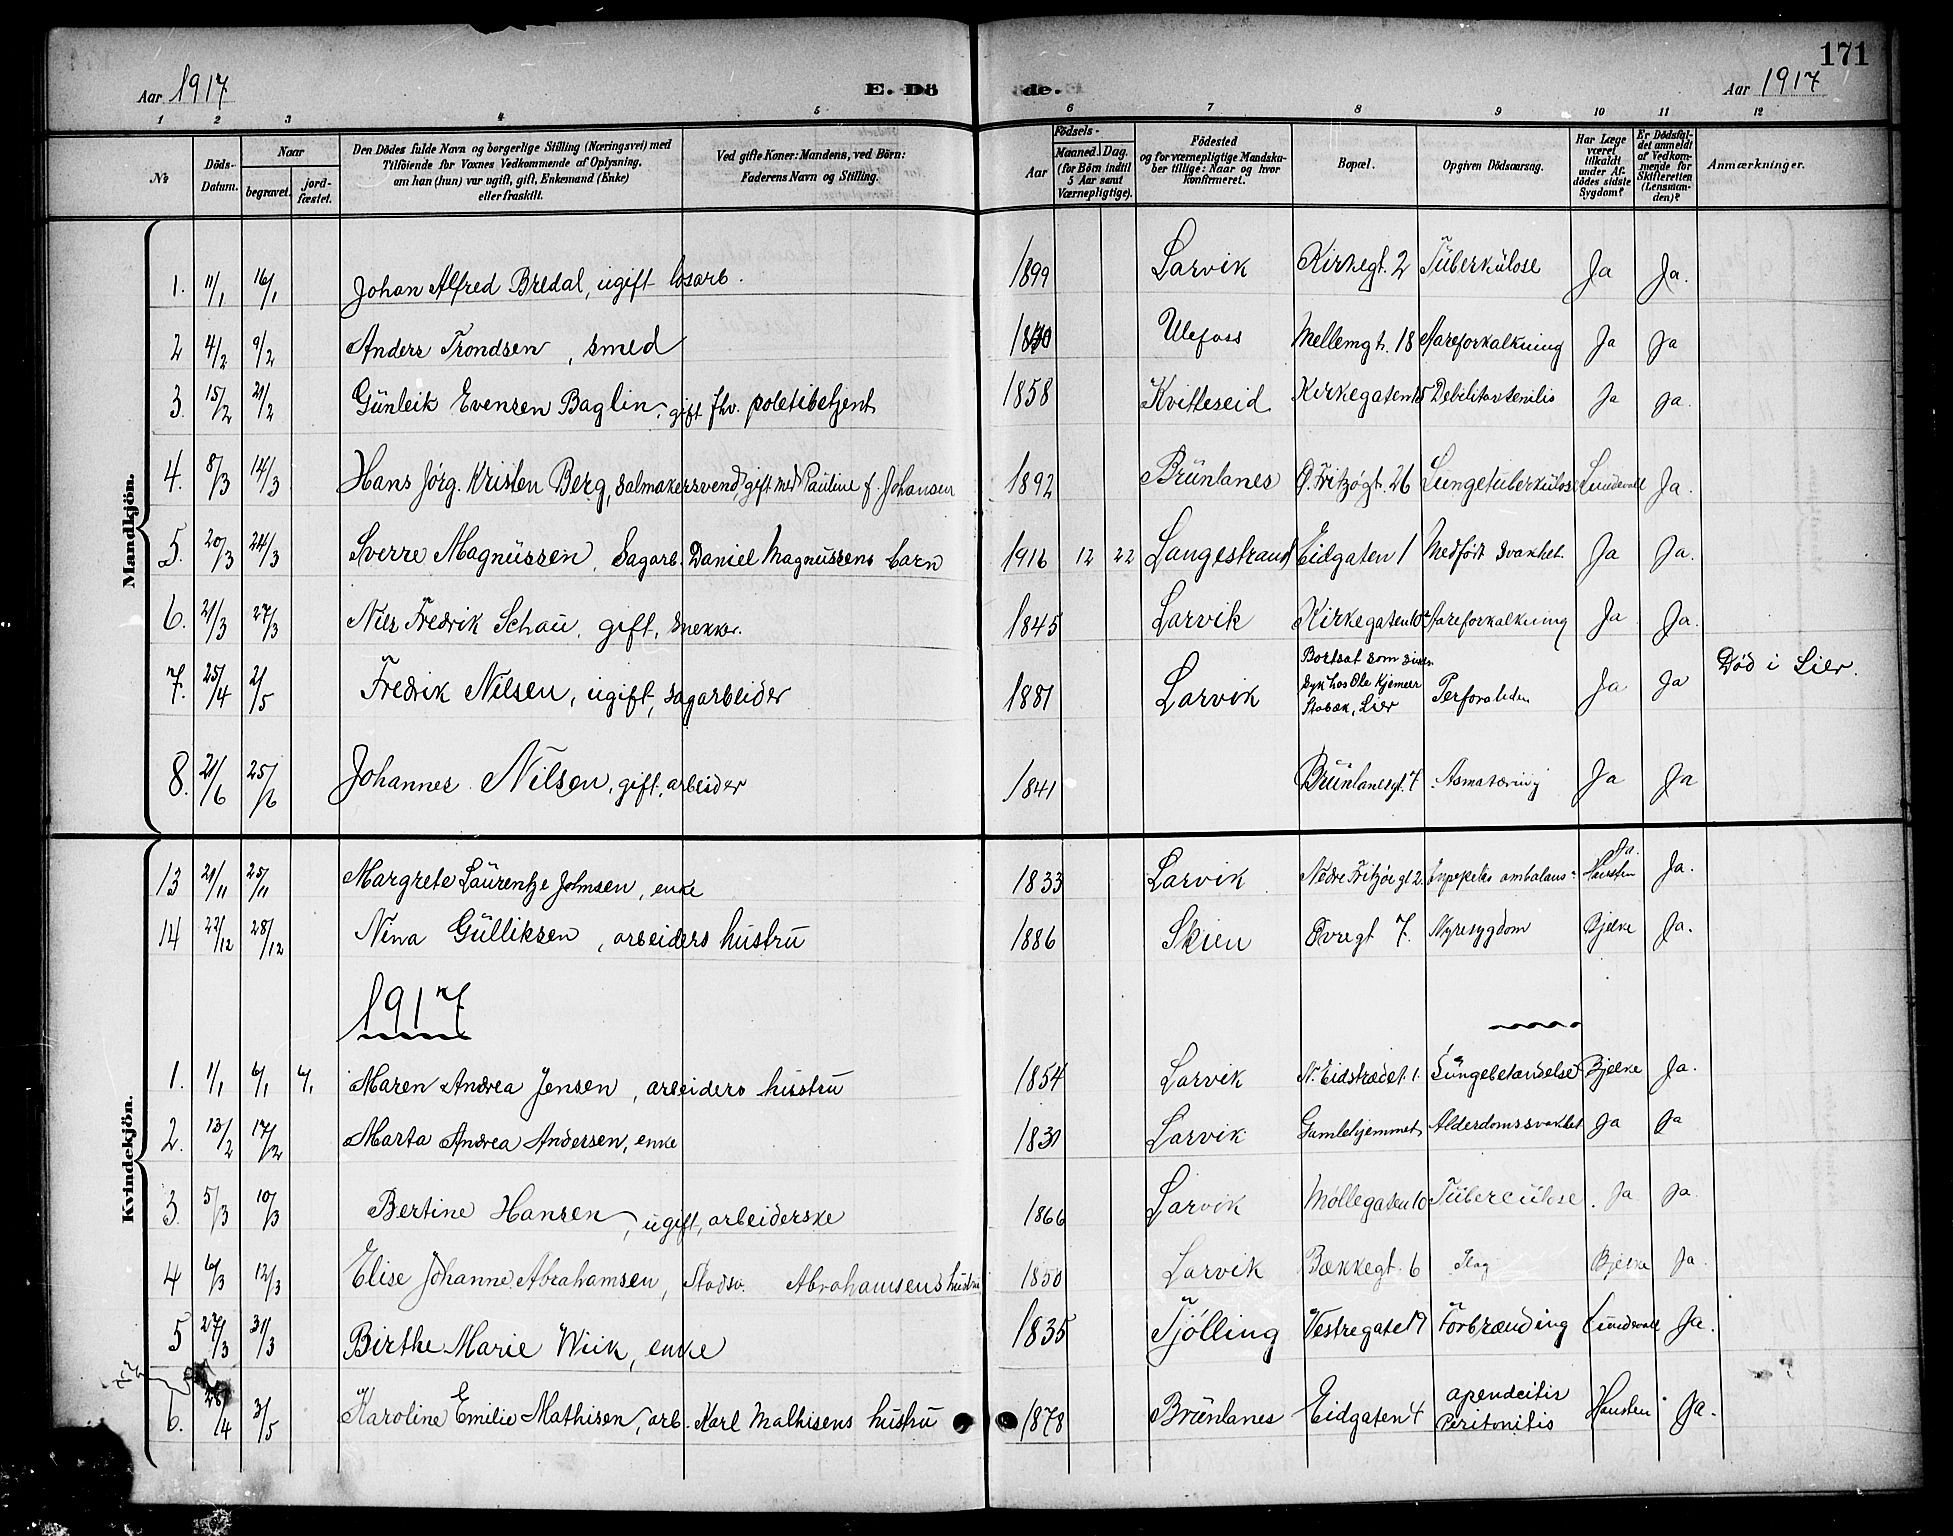 171
Aar 1917
E. Dö
de.
Aar 1917
1 2 3 4 5 6 7 8 9 10 11 12
№
Döds-Datum.
Naar
begravet.
jord-fæstet.
Den Dödes fulde Navn og borgerlige Stilling (Næringsvei) med
Tilföiende for Voxnes Vedkommende af Oplysning.
om han (hun) var ugift, gift, Enkemand (Enke)
eller fraskilt.
Ved gifte Koner: Mandens, ved Börn:
Faderens Navn og Stilling.
Födsels-
Aar
Maaned. Dag.
(for Börn indtil
5 Aar samt
Værnepligtige).
Födested
og for værnepligtige Mandska-
ber tillige: Naar og hvor
konfirmeret.
Bopæl.
Opgiven Dödsaarsag.
Har Læge
været
tilkaldt
under Af-
dödes sidste
Sygdom?
Er Dödsfal-
det anmeldt
af Vedkom-
mende for
Skifteretten
(Lensman-
den)?
Anmærkninger.
Mandkjön.
1. 11/1 16/1 Johan Alfred Bredal, ugift løsarb. 1899 Larvik Kirkegt. 2 Tüberkülose Ja Ja.
2 4/2 9/2 Anders Trondsen, smed Ulefoss Mellemgt. 18 Aareforkalkning Ja Ja
3. 15/2 21/2 Günleik Evensen Baglin, gift fhv. poletibetjent 1858 Kvitteseid Kirkegaten Ja Ja.
4. 8/3 14/3 Hans Jörg. Kristen Berg, salmakersvend, gift med Pauline f. Johansen 1892 Brünlanes Ø. Fritzøgt. 26 Lungetuberkülose Lundevall Ja.
5. 20/3 24/3 Sverre Magnüssen, Sagarb. Daniel Magnussens barn 1916 12 22 Langestrand Eidgaten 1 Medfødt svakhet Ja Ja.
6. 21/3 27/3 Nils Fredrik Schaü, gift, snekker. 1845 Larvik Kirkegaten Aareforkalkning Ja Ja.
7. 25/4 2/5 Fredrik Nilsen, ugift, sagarbeider 1881 Larvik Bortsat som sinds-
syk hos Ole Kjemeer
Stabæk, Lier Ja Ja Död i Lier.
8. 21/6 25/6 Johannes Nilsen, gift, arbeider 1841 Brünlanesgt. 7 Ja Ja
Kvindekjön.
13 21/11 25/11 Margrete Laürentze Johnsen, enke 1833 Larvik Nødre Fritzøegt 2. Ja. Hansten Ja.
14 22/12 28/12 Nina Gülliksen, arbeiders hustrü 1886 Skien Øvregt 7. Nyresygdom Bjelke Ja.
1917
1. 1/1 6/1 Maren Andrea Jensen, arbeiders hüstrü 1854 Larvik N. Eidstrædet. 1. Lüngebetændelse Bjelke Ja.
2. 13/2 17/2 Marta Andrea Andersen, enke 1831 Larvik Gamlehjemmet Alderdomssvakhet Ja Ja
3. 5/3 10/3 Bertine Hansen, ugift, arbeiderske 1866 Larvik Møllegaten 10 Tüberculose Ja Ja
4 6/3 12/3 Elise Johanne Abrahamsen, Abrahamsens hustru 1850 Larvik Bækkegt. 6 Slag Bjelke Ja
5 27/3 31/3 Birthe Marie Wiik, enke 1835 Tjølling Vestregate 17 Förbrænding Lundevall Ja.
6. 28/4 3/5 Karoline Emilie Mathisen, arb. Karl Mathisens hustru 1878 Brünlanes Eidgaten 4 apendcitis
Peritonitis Hansten Ja.